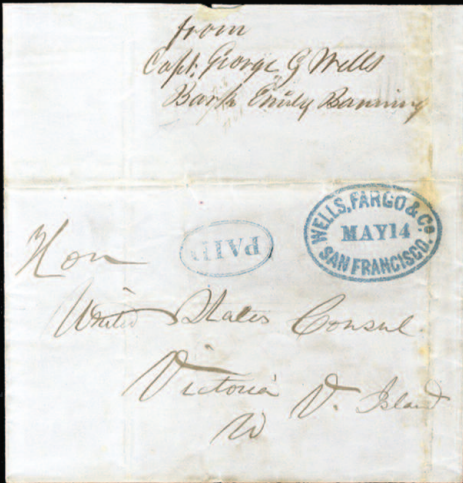 from
Capt. George G Wells
Bark Emily Banning
WELLS, FARGO & Co.
MAY 14
SAN FRANCISCO.
PAID
Hon
United States Consul
Victoria V. Island
W